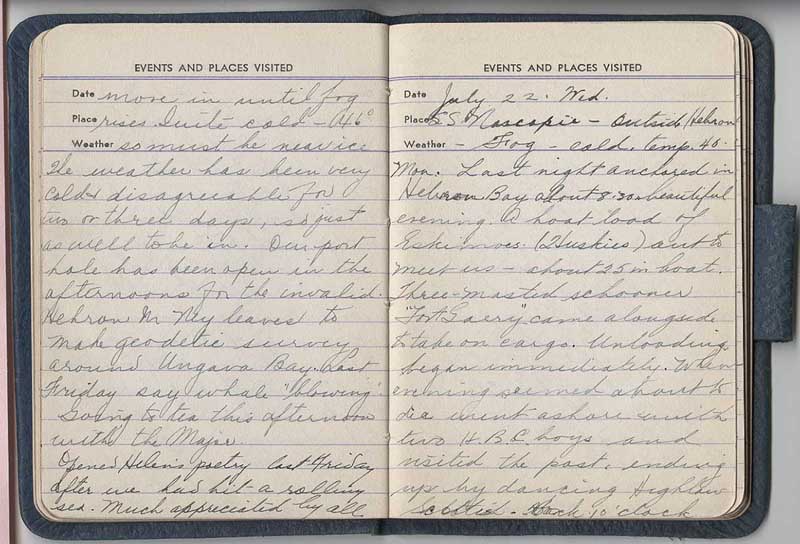 EVENTS AND PLACES VISITED
Date move in until fog
Place rises. Quite cold - 46°
Weather so must be near ice
The weather has been very
cold & disagreeable for
two or three days, so just
as well to be in. Our port
hole has been open in the
afternoons for the invalid.
Hebron Mr Ney leaves to
make geodetic survey
around Ungava Bay. Last
Friday say whale "blowing".
Going to tea this afternoon
with the Major.
Helen's poetry last Friday
after we had hit a rolling
sea. Much appreciated by all
EVENTS AND PLACES VISITED
Date July 22. Wed.
Place SS Nascopie - Outside Hebron
Weather - Fog - cold. temp. 40.
Mon. Last night anchored in
Hebron Bay about 8.30 - beautiful
evening. A boat load of
Eskimoes (Huskies) out to
meet us - about 25 in boat.
Three-masted schooner
"Fort Garry" came alongside
to take on cargo. Unloading
began immediately. When
evening seemed about to
die went ashore with
two H.B.C. boys and
visited the post, ending
up by dancing Highland
10 o'clock